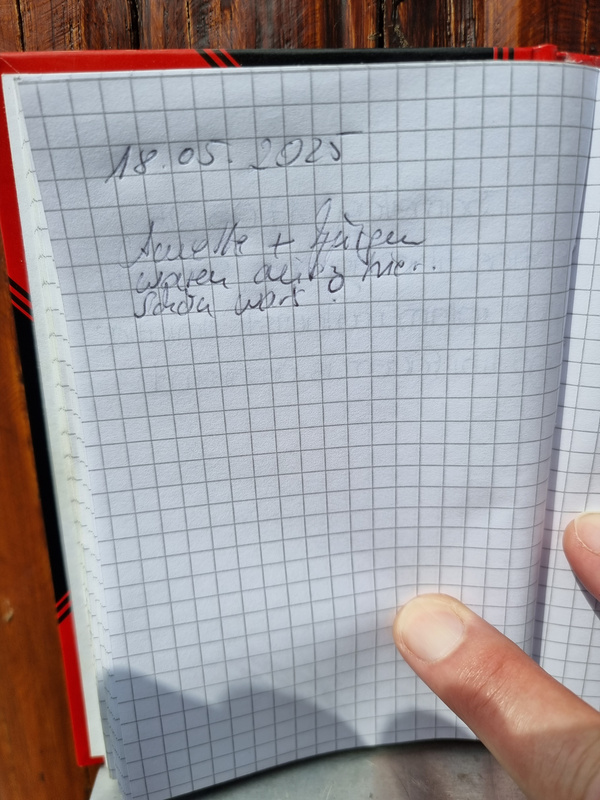 18.05.2025
Annette + Jürgen
waren hier.
Schön war's!